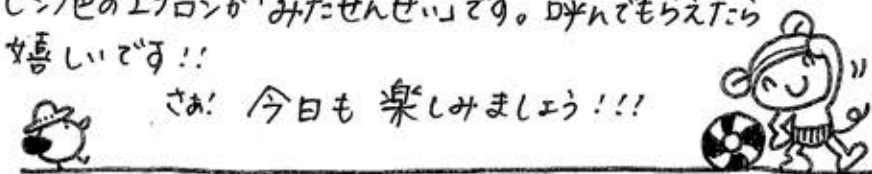 ピンク色のエプロンが「みたせんせい」です。呼んでもらえたら
嬉しいです!!
さぁ! 今日も 楽しみましょう!!!